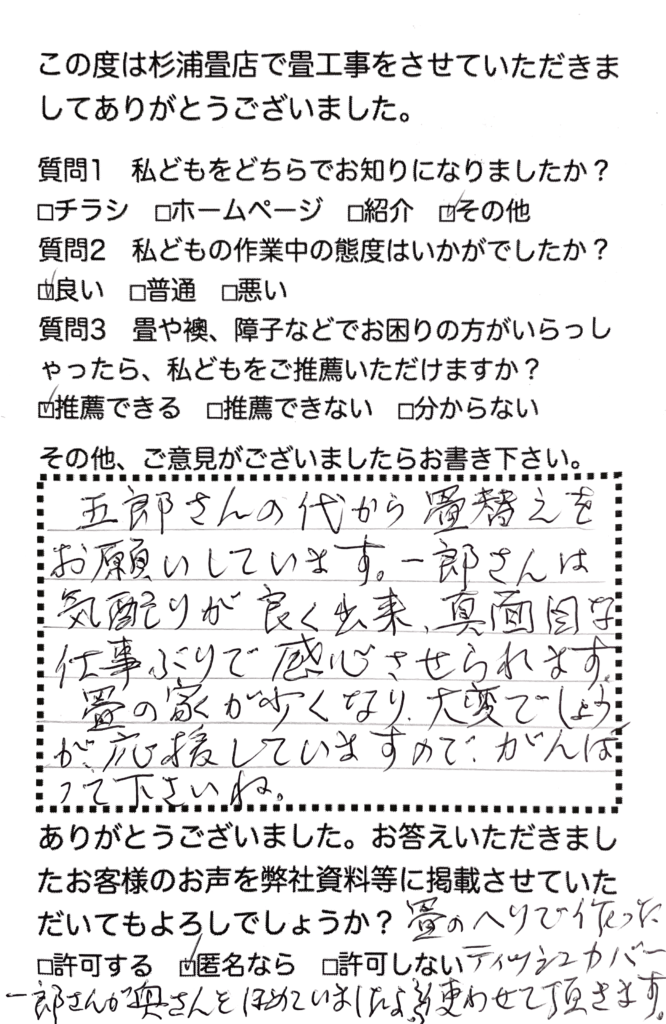 この度は杉浦畳店で畳工事をさせていただきま
してありがとうございました。
質問1　私どもをどちらでお知りになりましたか？
□チラシ　□ホームページ　□紹介　☑その他
質問2　私どもの作業中の態度はいかがでしたか？
☑良い　□普通　□悪い
質問3　畳や襖、障子などでお困りの方がいらっし
ゃったら、私どもをご推薦いただけますか？
☑推薦できる　□推薦できない　□分からない
その他、ご意見がございましたらお書き下さい。
五郎さんの代から畳替えを
お願いしています。一郎さんは
気配りが良く出来、真面目な
仕事ぶりで感心させられます。
畳の家が少くなり、大変でしょう
が、応援していますので、がんば
って下さいね。
ありがとうございました。お答えいただきまし
たお客様のお声を弊社資料等に掲載させていた
だいてもよろしでしょうか？　畳のへりで作った
□許可する　☑匿名なら　□許可しない　ティッシュカバー
一郎さんが奥さんをほめていましたよ　使わせて頂きます。